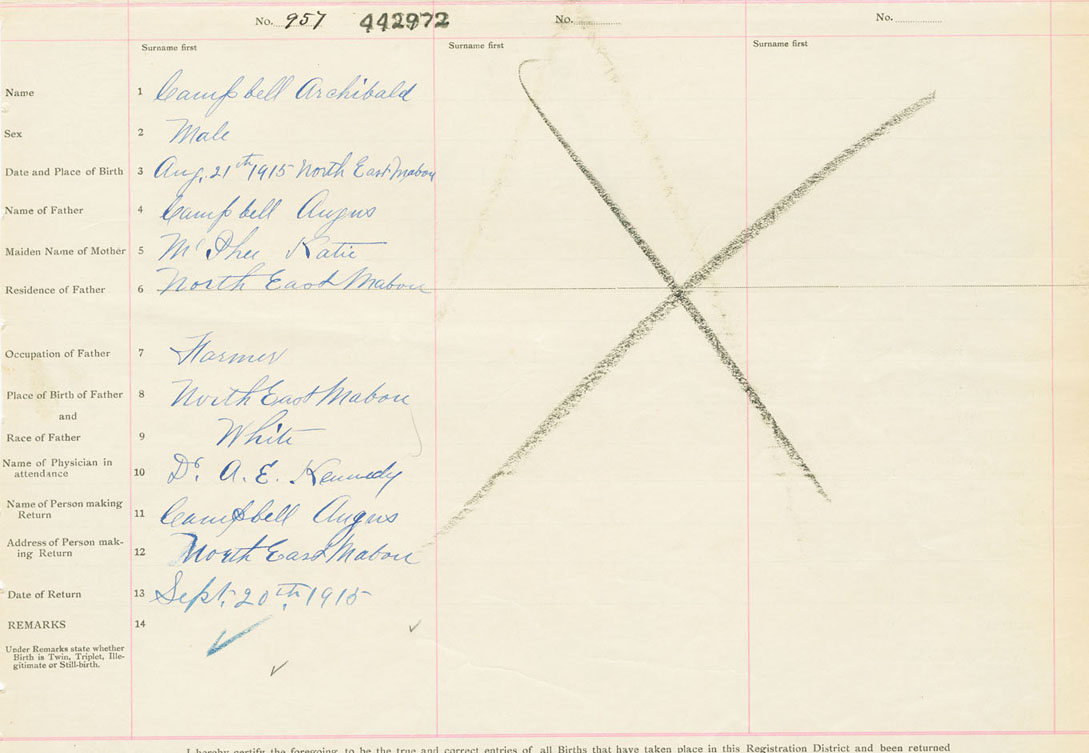 No. 957 442972 No. No.
Surname first Surname first Surname first
Name 1 Campbell Archibald
Sex 2 Male
Date and Place of Birth 3 Aug. 21th 1915 North East Mabou
Name of Father 4 Campbell Angus
Maiden Name of Mother 5 Mc Phee Katie
Residence of Father 6 North East Mabou
Occupation of Father 7 Farmer
Place of Birth of Father 8 North East Mabou
and
Race of Father 9 White
Name of Physician in
attendance 10 Dr. A. E. Kennedy
Name of Person making
Return 11 Campbell Angus
Address of Person mak-
ing Return 12 North East Mabou
Date of Return 13 Sept. 20th 1915
REMARKS 14
Under Remarks state whether
Birth is Twin, Triplet, Ille-
gitimate or Still-birth.
I hereby certify the foregoing to be the true and correct entries of all Births that have taken place in this Registration District and been returned